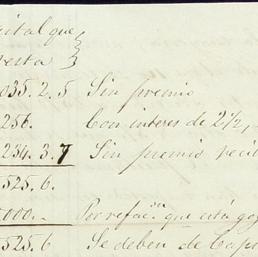 ital que
resta
035.2.5 Sin premio
256. Con interes de 2½,
234.3.7 Sin premio reci
525.6.
000.- Por refac.on que está go
525.6 Se deben de Cap